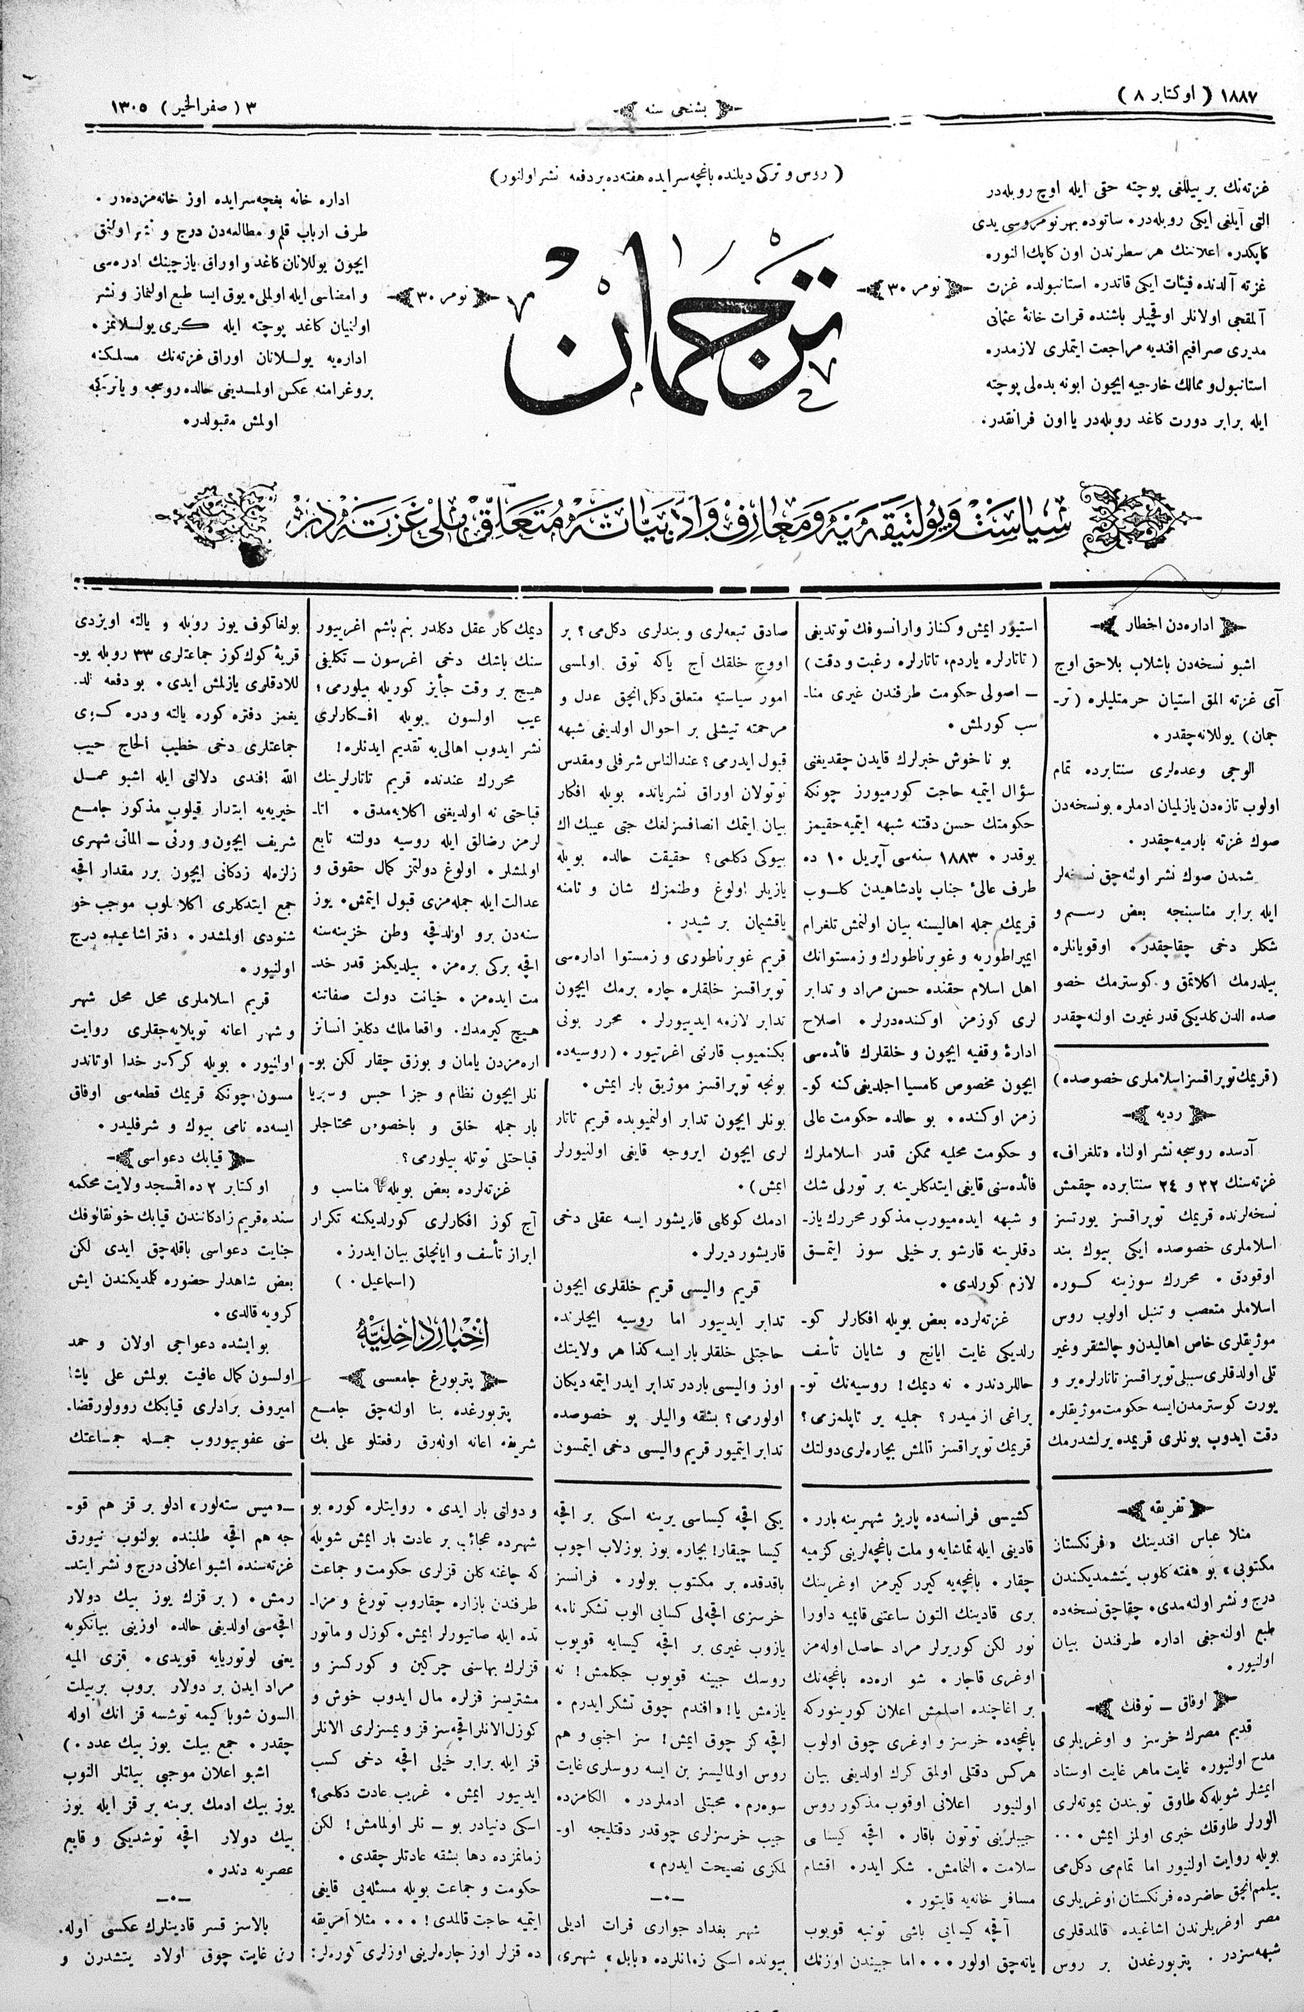 ١٨٨٧ ( اوكتابر ٨ )
بشنجى سنه
٣ ( صفر الخير ) ١٣٠٥
( روس و تركى ديلنده باغچه سرايده هفته ده بر دفعه نشر اولنور )
غزته‌نك بر ييللغى پوچته حقى ايله اوچ روبله‌در
التى آيلغى ايكى روبله‌در، ساتوده بهر نومروسى يدى
كاپكدر، اعلاننك هر سطرندن اون كاپك النور،
غزته آلدنده فيئات ايكى قاتدر، استانبولده غزت
آلمقجى اولانلر اوقچيلر باشنده قرات خانهٔ عثمانى
مديرى صرافيم افنديه مراجعت ايتملرى لازمدر،
استانبول و ممالك خارجيه ايچون ابونه بدلى پوچته
ايله برابر دورت كاغد روبله‌در يا اون فرانقدر.
نومر ٣٠
ترجمان
نومر ٣٠
اداره خانه بغچه‌سرايده اوز خانه‌مزده‌در .
طرف ارباب قلم و مطالعه‌دن درج و نشر اولنمق
ايچون يوللانان كاغد و اوراق يازچينك ادره‌سى
و امضاسى ايله اولملى. يوق ايسا طبع اولنماز و نشر
اولنيان كاغد پوچته ايله كرى يوللانمز.
اداره‌يه يوللانان اوراق غزته‌نك مسلكنه
بروغرامنه عكس اولمديغى حالده روسجه و يا تركچه
اولمش مقبولدر.
سياست و پولتيقه‌يه و معارف و ادبياته متعلق ملى غزته‌در
اداره‌دن اخطار
اشبو نسخه‌دن باشلاب بلاحق اوچ
آى غزته المق استيان حرمتليلره ( تر-
جمان ) يوللانه‌چقدر .
الوجى وعده‌لرى سنتابرده تمام
اولوب تازه‌دن يازلميان ادملره بو نسخه‌دن
صوك غزته بارميه‌چقدر .
شمدن صوك نشر اولنه‌چق نسخه‌لر
ايله برابر مناسبنجه بعض رسم و
شكلر دخى چقاچقدر . اوقويانلره
بيلدرمك اكلاتمق و كوسترمك خصو
صده الدن كلديكى قدر غيرت اولنه‌چقدر
( قريمك توپراقسز اسلاملرى خصوصده )
رديه
آدسده روسجه نشر اولنان «تلغراف»
غزته‌سنك ٢٢ و ٢٤ سنتابرده چقمش
نسخه‌لرنده قريمك توپراقسز يورتسز
اسلاملرى خصوصده ايكى بيوك بند
اوقودق . محررك سوزينه كوره
اسلاملر متعصب و تنبل اولوب روس
موژيقلرى خاص اهاليدن و چالشقر و غير
تلى اولدقلرى سببلى توپراقسز تاتارلره ير و
يورت كوسترمدن ايسه حكومت موژيقلره
دقت ايدوب بونلرى قريمده يرلشدرمك
استيور ايمش و كناز وارانسوفك توتديغى
( تاتارلره ياردم، تاتارلره رغبت و دقت )
– اصولى حكومت طرفندن غيرى منا-
سب كورلمش .
بو ناخوش خبرلرك قايدن چقديغنى
سؤال ايتميه حاجت كورميورز چونكه
حكومتك حسن دقتنه شبهه ايتميه حقيمز
يوقدر . ١٨٨٣ سنه‌سى آپريل ١٠ ده
طرف عالئ جناب پادشاهيدن كلوب
قريمك جمله اهاليسنه بيان اولنمش تلغرام
ايمپراطوريه و غوبرناطورك و زمستوانك
اهل اسلام حقنده حسن مراد و تدابر
لرى كوزمز اوكنده‌درلر . اصلاح
ادارهٔ وقفيه ايچون و خلقلرك فائده‌سى
ايچون مخصوص كامسيا اجلديغى كنه كو-
زمز اوكنده . بو حالده حكومت عالى
و حكومت محليه ممكن قدر اسلاملرك
فائده‌سنى قايغى ايتدكلرينه بر تورلى شك
و شبهه ايده‌ميورب مذكور محررك ياز-
دقلرينه قارشو بر خيلى سوز ايتمق
لازم كورلدى .
غزته‌لرده بعض بويله افكارلر كو-
رلديكى غايت ايانچ و شايان تأسف
حاللردندر . نه ديمك! روسيه‌نك تو-
براغى از ميدر؟ جمليه ير تاپلمزمى؟
قريمك توپراقسز قالمش بچاره‌لرى دولتك
صادق تبعه‌لرى و بندلرى دكلمى؟ بر
اووج خلقك آج ياكه توق اولمسى
امور سياسته متعلق دكل انجق عدل و
مرحمته تيشلى بر احوال اولديغى شبهه
قبول ايدرمى؟ عندالناس شرفلى و مقدس
توتولان اوراق نشريانده بويله افكار
بيان ايتمك انصافسزلغك حتى عيبك اك
بيوكى دكلمى؟ حقيقت حالده بويله
يازيلر اولوغ وطنمزك شان و نامنه
ياقشيمان بر شيدر .
قريم غوبرناطورى و زمستوا اداره‌سى
توپراقسز خلقلره چاره برمك ايچون
تدابر لازمه ايديبورلر . محرر بونى
بكنميوب قارننى اغرتيور . ( روسيه‌ده
بونجه توپراقسز موژيق بار ايمش .
بونلر ايچون تدابر اولنميوبده قريم تاتار
لرى ايچون ايروجه قايغى اولنيورلر
ايمش ) .
ادمك كوكلى قاريشور ايسه عقلى دخى
قاريشور ديرلر .
قريم واليسى قريم خلقلرى ايچون
تدابر ايديبور اما روسيه ايچلرنده
حاجتلى خلقلر بار ايسه كذا هر ولايتك
اوز واليسى باردر تدابر ايدر ايتمه ديكان
اولورمى؟ بشقه واليلر بو خصوصده
تدابر ايتميور قريم واليسى دخى ايتمسون
ديمك كار عقل دكلدر بنم باشم اغريبور
سنك باشك دخى اغرسون – تكليفى
هيچ بر وقت جأيز كوريله بيلورمى؟
عيب اولسون بويله افكارلرى
نشر ايدوب اهالى‌يه تقديم ايدنلره!
محررك عندنده قريم تاتارلرينك
قباحتى نه اولديغنى اكلايه‌مدق . اتا-
لرمز رضالق ايله روسيه دولتنه تابع
اولمشلر . اولوغ دولتمز كمال حقوق و
عدالت ايله جمله‌مزى قبول ايتمش. يوز
سنه‌دن برو اولدقچه وطن خزينه‌سنه
اقچه بركى بره‌مز . بيلديكمز قدر خد-
مت ايده‌مز . خيانت دولت صفاتنه
هيچ كيرمدك. واقعا ملك دكليز انسانز
اره‌مزدن يامان و بوزق چقار لكن بو-
نلر ايچون نظام و جزا حبس و سبريا
بار جمله خلق و باخصوص محتاجلر
قباحتلى توتله بيلورمى؟
غزته‌لرده بعض بويله نامناسب و
آج كوز افكارلرى كورلديكنه تكرار
ابراز تأسف و ايانچلق بيان ايدرز .
( اسماعيل . )
اخبار داخليه
پتربورغ جامعسى
پتربورغده بنا اولنه‌چق جامع
شريفه اعانه اوله‌رق رفعتلو على بك
بولغاكوف يوز روبله و يالته اويزدى
قريهٔ كوك كوز جماعتلرى ٣٣ روبله يو-
للادقلرى يازلمش ايدى . بو دفعه الد-
يغمز دفتره كوره يالته و دره كوى
جماعتلرى دخى خطيب الحاج حبيب
الله افندى دلالتى ايله اشبو عمل
خيريه‌يه ابتدار قيلوب مذكور جامع
شريف ايچون و ورنى – الماتى شهرى
زلزله زدكانى ايچون برر مقدار اقچه
جمع ايتدكلرى اكلانلوب موجب خو
شنودى اولمشدر . دفتر اشاغيده درج
اولنيور .
قريم اسلاملرى محل محل شهر
و شهر اعانه توپلايه‌جقلرى روايت
اولنيور . بويله كركدر خدا اوتاندر
مسون چونكه قريمك قطعه‌سى اوفاق
ايسه‌ده نامى بيوك و شرفليدر .
قيابك دعواسى
اوكتابر ٢ ده اقمسجد ولايت محكمه
سنده قريم زادكانندن قيابك خونقالوفك
جنايت دعواسى باقله‌چق ايدى لكن
بعض شاهدلر حضوره كلمديكندن ايش
كرويه قالدى .
بو ايشده دعواجى اولان و حمد
اولسون كمال عافيت بولمش على پاشا
اميروف برادلرى قيابكك روولور قضا-
سنى عفو بيوروب جمله جماعتك
تفريقه
منلا عباس افندينك «فرنكستان
مكتوبى» بو هفته كلوب يتشمديكندن
درج و نشر اولنه‌مدى. چقاچق نسخه‌ده
طبع اولنه‌جغى اداره طرفندن بيان
اولنيور .
اوفاق – توفك
قديم مصرك خرسز و اوغريلرى
مدح اولنيور. غايت ماهر غايت اوستاد
ايمشلر شويله‌كه طاوق توبندن يمورته‌لرى
الورلر طاوقك خبرى اولمز ايمش . . .
بويله روايت اولنيور اما تمام‌مى دكل‌مى
بيلمم انجق حاضرده فرنكستان اوغريلرى
مصر اوغريلرندن اشاغيده قالمدقلرى
شبهه‌سزدر . پتربورغدن بر روس
كشيسى فرانسه‌ده پاريژ شهرينه بارر .
قادينى ايله تماشايه و ملت باغچه‌لرينى كزميه
چقار . باغچه‌يه كيرر كيرمز اوغرينك
برى قادينك التون ساعتنى قاپيه داورا
نور لكن كوريرلر مراد حاصل اوله‌مز
اوغرى قاچار . شو اره‌ده باغچه‌نك
بر اغاچنده اصلمش اعلان كورينوركه
باغچه‌ده خرسز و اوغرى چوق اولوب
هركس دقتلى اولمق كرك اولديغى بيان
اولنيور اعلانى اوقوب مذكور روس
جيبلرينى توتون باقار . اقچه كيسا مى
سلامت . النمامش. شكر ايدر. اقشام
مسافر خانه‌يه قايتور .
آقچه كيسايى باشى تونيه قويوب
ياته‌چق اولور . . . اما جيبندن اوزنك
يكى اقچه كيساسى برينه اسكى بر اقچه
كيسا چيقار! بچاره بوز بوزلاب اچوب
باقدقده بر مكتوب بولور . فرانسز
خرسزى اقچه‌لى كسايى الوب تشكر نامه
يازوب غيرى بر اقچه كيسايه قويوب
روسك جيبنه قويوب جكلمش! نه
يازمش يا! «افندم چوق تشكر ايدرم .
اقچه كز چوق ايمش! سز اجنبى و هم
روس اولماليسز بن ايسه روسلرى غايت
سوه‌رم . محبتلى ادملردر . الكامزده
جيب خرسزلرى چوقدر دقتليجه او-
لمكزى نصيحت ايدرم»
شهر بغداد جوارى فرات اديلى
بيونده اسكى زمانلرده «بابل» شهرى
و دولتى بار ايدى . روايتلره كوره بو
شهرده عجائب بر عادت بار ايمش شويله
كه چاغنه كلن قزلرى حكومت و جماعت
طرفندن بازاره چقاروب تورغ و مزا-
تده ايله صاتيورلر ايمش. كوزل و ماتور
قزلرك بهاسنى چركين و كوركسز و
مشتريسز قزلره مال ايدوب خوش و
كوزل الانلر اقچه‌سز قز و يمسزلرى الانلر
قز ايله برابر خيلى اقچه دخى كسب
ايديبور ايمش . غريب عادت دكلمى؟
اسكى دنيادر بو – نلر اولمامش! لكن
زمانمزده دها بشقه عادتلر چقدى .
حكومت و جماعت بويله مسئله‌يى قايغى
ايتميه حاجت قالمدى! . . . مثلا آمريقه
ده قزلر اوز چاره‌لرينى اوزلرى كوره‌لر:
–«ميس سته‌لور» ادلو بر قز هم قو-
جه هم اقچه طلبنده بولنوب نيورق
غزته‌سنده اشبو اعلانى درج و نشر ايتد-
رمش . ( بر قزك يوز بيك دولار
اقچه‌سى اولديغى حالده اوزينى بيانكويه
يعنى لوتوريايه قويدى . قزى الميه
مراد ايدن بر دولار بروب بر بيلت
السون شوبا كيمه توشسه قز انك اوله
چقدر . جمع بيلت يوز بيك عدد . )
اشبو اعلان موجبى بيلتلر النوب
يوز بيك ادمك برينه بر قز ايله يوز
بيك دولار اقچه توشديكى وقايع
عصريه دندر .
بالاسز قسر قادينلرك عكسى اوله.
رق غايت چوق اولاد يتشدرن و